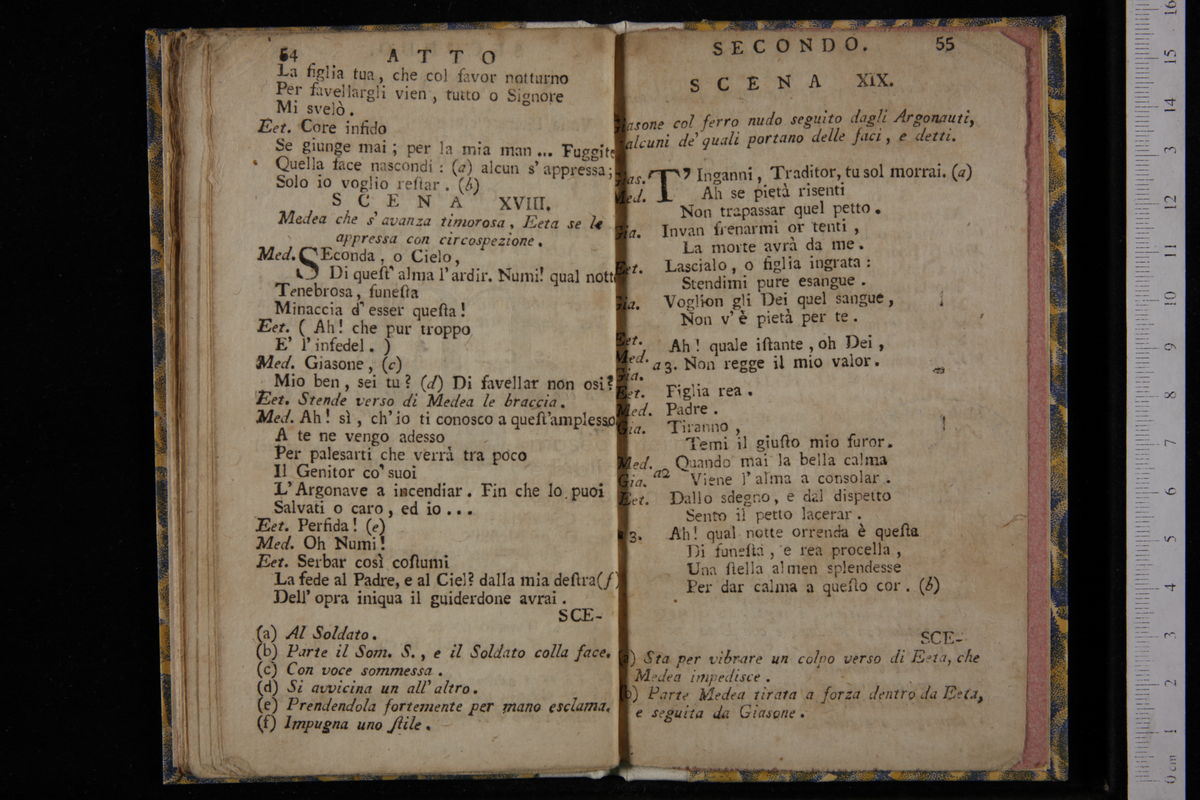 54 ATTO
La figlia tua, che col favor notturno
Per favellargli vien, tutto o Signore
Mi svelò.
Eet. Core infido
Se giunge mai; per la mia man... Fuggite
Quella face nascondi: (a) alcun s'appressa;
Solo io voglio reſtar. (b)
SCENA XVIII.
Medea che s'avanza timorosa, Eeta se le
appressa con circospezione.
Med. SEconda, o Cielo,
Di queſt'alma l'ardir. Numi! qual notte
Tenebrosa, funeſta
Minaccia d'esser queſta!
Eet. (Ah! che pur troppo
E' l'infedel.)
Med. Giasone, (c)
Mio ben, sei tu? (d) Di favellar non osi?
Eet. Stende verso di Medea le braccia.
Med. Ah! sì, ch'io ti conosco a queſt'amplesso
A te ne vengo adesso
Per palesarti che verrà tra poco
Il Genitor co' suoi
L'Argonave a incendiar. Fin che lo puoi
Salvati o caro, ed io...
Eet. Perfida! (e)
Med. Oh Numi!
Eet. Serbar così coſtumi
La fede al Padre, e al Ciel? dalla mia deſtra (f)
Dell'opra iniqua il guiderdone avrai.
SCE-
(a) Al Soldato.
(b) Parte il Som. S., e il Soldato colla face.
(c) Con voce sommessa.
(d) Si avvicina un all'altro.
(e) Prendendola fortemente per mano esclama.
(f) Impugna uno ſtile.
SECONDO. 55
SCENA XIX.
Giasone col ferro nudo seguito dagli Argonauti,
alcuni de' quali portano delle faci, e detti.
Gias. T'Inganni, Traditor, tu sol morrai. (a)
Med. Ah se pietà risenti
Non trapassar quel petto.
Gia. Invan frenarmi or tenti,
La morte avrà da me.
Eet. Lascialo, o figlia ingrata:
Stendimi pure esangue.
Gia. Voglion gli Dei quel sangue,
Non v'è pietà per te.
Eet. Ah! quale iſtante, oh Dei,
Med. a 3. Non regge il mio valor.
Gia.
Eet. Figlia rea.
Med. Padre.
Gia. Tiranno,
Temi il giuſto mio furor.
Med. Quando mai la bella calma
Gia. a2 Viene l'alma a consolar.
Eet. Dallo sdegno, e dal dispetto
Sento il petto lacerar.
a 3. Ah! qual notte orrenda è queſta
Di funeſta, e rea procella,
Una ſtella almen splendesse
Per dar calma a queſto cor. (b)
SCE-
(a) Sta per vibrare un colpo verso di Eeta, che
Medea impedisce.
(b) Parte Medea tirata a forza dentro da Eeta,
e seguita da Giasone.
0 cm 1 2 3 4 5 6 7 8 9 10 11 12 13 14 15 16